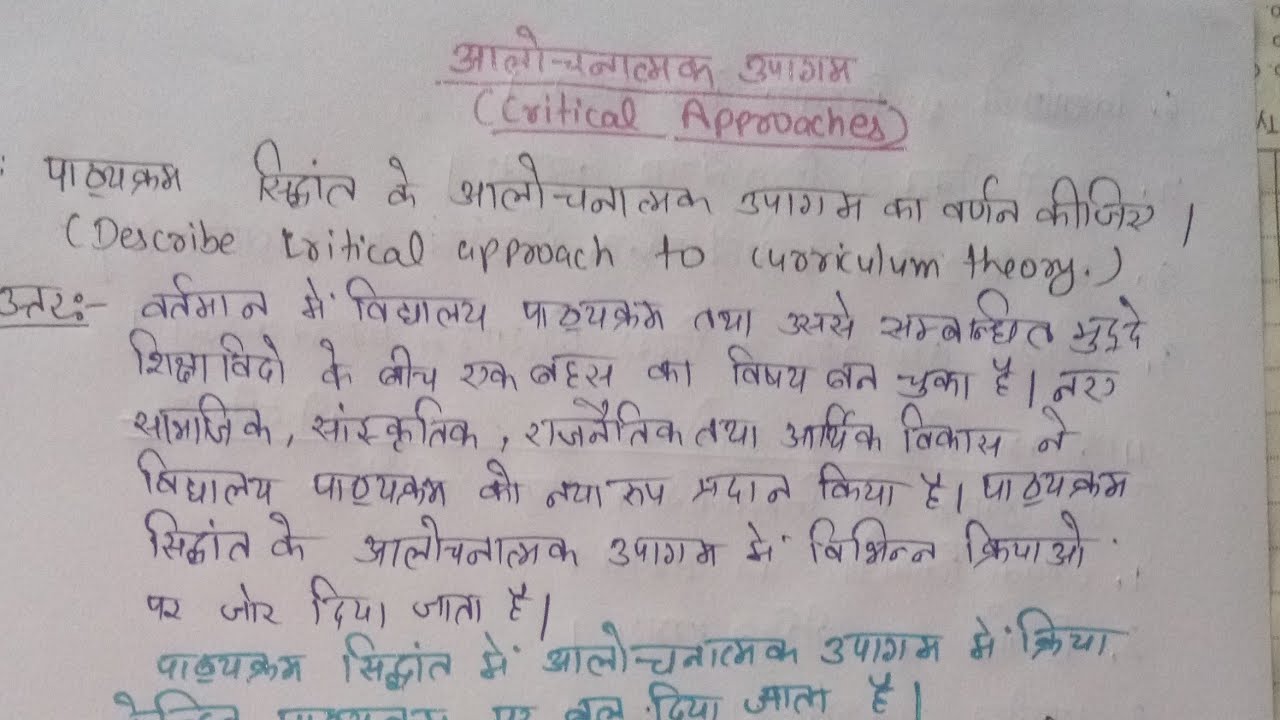 आलोचनात्मक उपागम
(Critical Approaches)
: पाठ्यक्रम सिद्धांत के आलोचनात्मक उपागम का वर्णन कीजिए।
(Describe critical approach to curriculum theory.)
उत्तरः- वर्तमान में विद्यालय पाठ्यक्रम तथा उससे सम्बन्धित मुद्दे
शिक्षाविदो के बीच एक बहस का विषय बन चुका है। नए
सामाजिक, सांस्कृतिक, राजनैतिक तथा आर्थिक विकास ने
विद्यालय पाठ्यक्रम को नया रूप प्रदान किया है। पाठ्यक्रम
सिद्धांत के आलोचनात्मक उपागम में विभिन्न क्रियाओ
पर जोर दिया जाता है।
पाठ्यक्रम सिद्धांत में आलोचनात्मक उपागम में क्रिया
पर बल दिया जाता है।